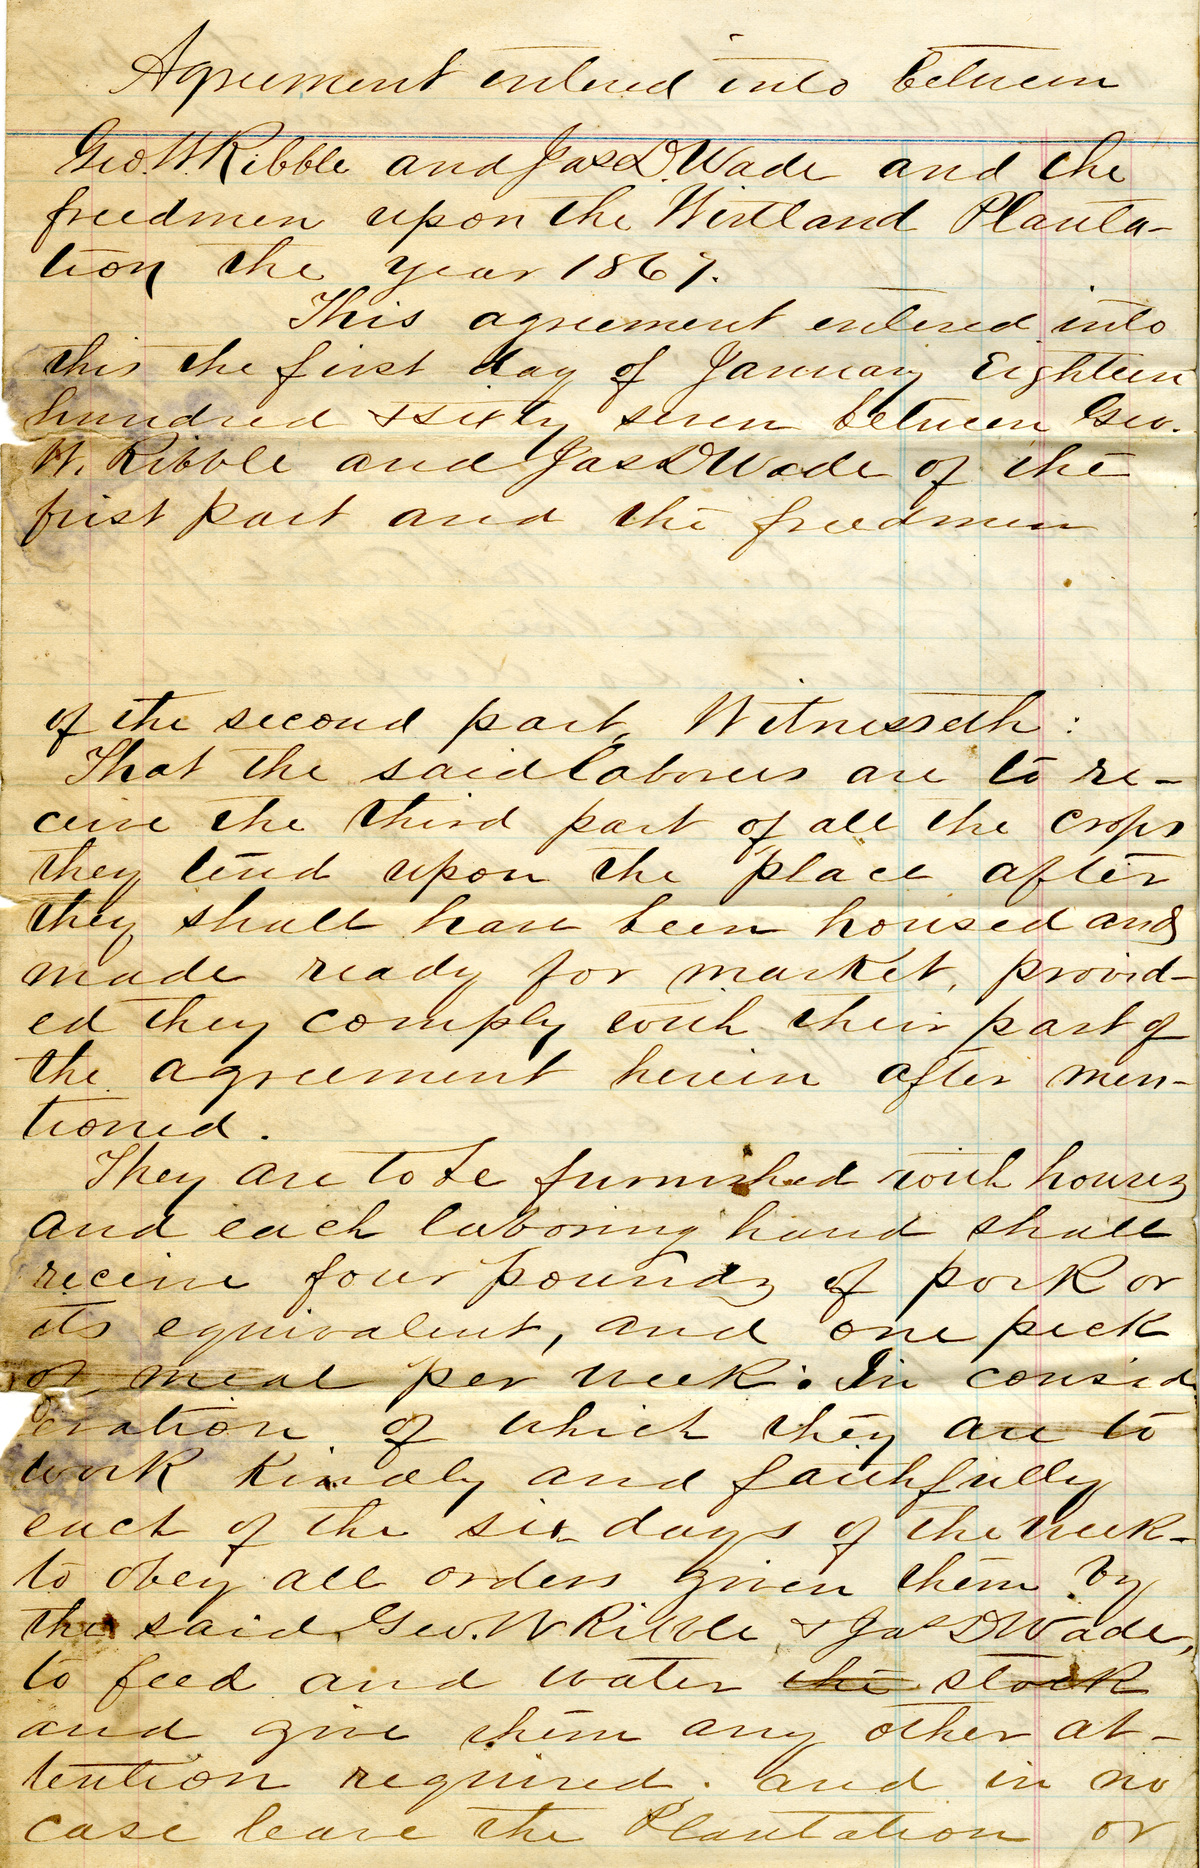 Agreement entered into between
Geo. W. Ribble and Jas D. Wade and the
freedmen upon the Wirtland Planta-
tion the year 1867.
This agreement entered into
this the first day of January Eighteen
hundred & sixty seven between Geo.
W. Ribble and Jas D Wade of the
frist part and the freedmen
of the second part, Witnesseth:
That the said laborers are to re-
ceive the third part of all the crops
they tend upon the place after
they shall have been housed and
made ready for market, provid-
ed they comply with their part of
the agreement herein after men-
tioned.
They are to be furnished with houses
and each laboring hand shall
receive four pounds of pork or
its equivalent, and one peck
of meal per week. In consid
eration of which they are to
work kindly and faithfully
each of the six days of the week-
to obey all orders given them by
the said Geo. W Ribble & Jas D Wade,
to feed and water the stock
and give them any other at-
tention required. and in no
case leave the Plantation or